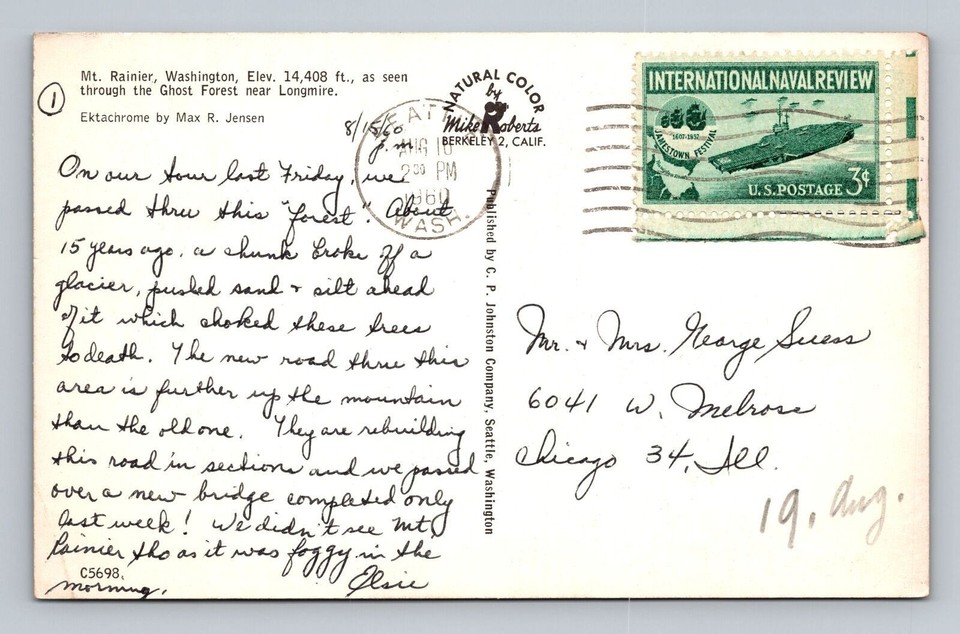 Mt. Rainier, Washington, Elev. 14,408 ft., as seen
through the Ghost Forest near Longmire.
1
Ektachrome by Max R. Jensen
8/15/60
On our tour last Friday, we
passed thru this "forest". About
15 years ago, a chunk broke off a
glacier, pushed sand & silt ahead
of it which choked these trees
to death. The new road thru this
area is further up the mountain
than the old one. They are rebuilding
this road in sections and we passed
over a new bridge completed only
last week! We didn't see Mt.
Rainier tho as it was foggy in the
morning.
Elsie
C5698
SEATTLE
AUG 16
2 30 PM
1960
WASH.
NATURAL COLOR
by
Mike Roberts
BERKELEY 2, CALIF.
Published by C. P. Johnston Company, Seattle, Washington
INTERNATIONAL NAVAL REVIEW
1607-1957
JAMESTOWN FESTIVAL
U.S. POSTAGE 3¢
Mr. & Mrs. George Suess
6041 W. Melrose
Chicago 34, Ill.
19. Aug.